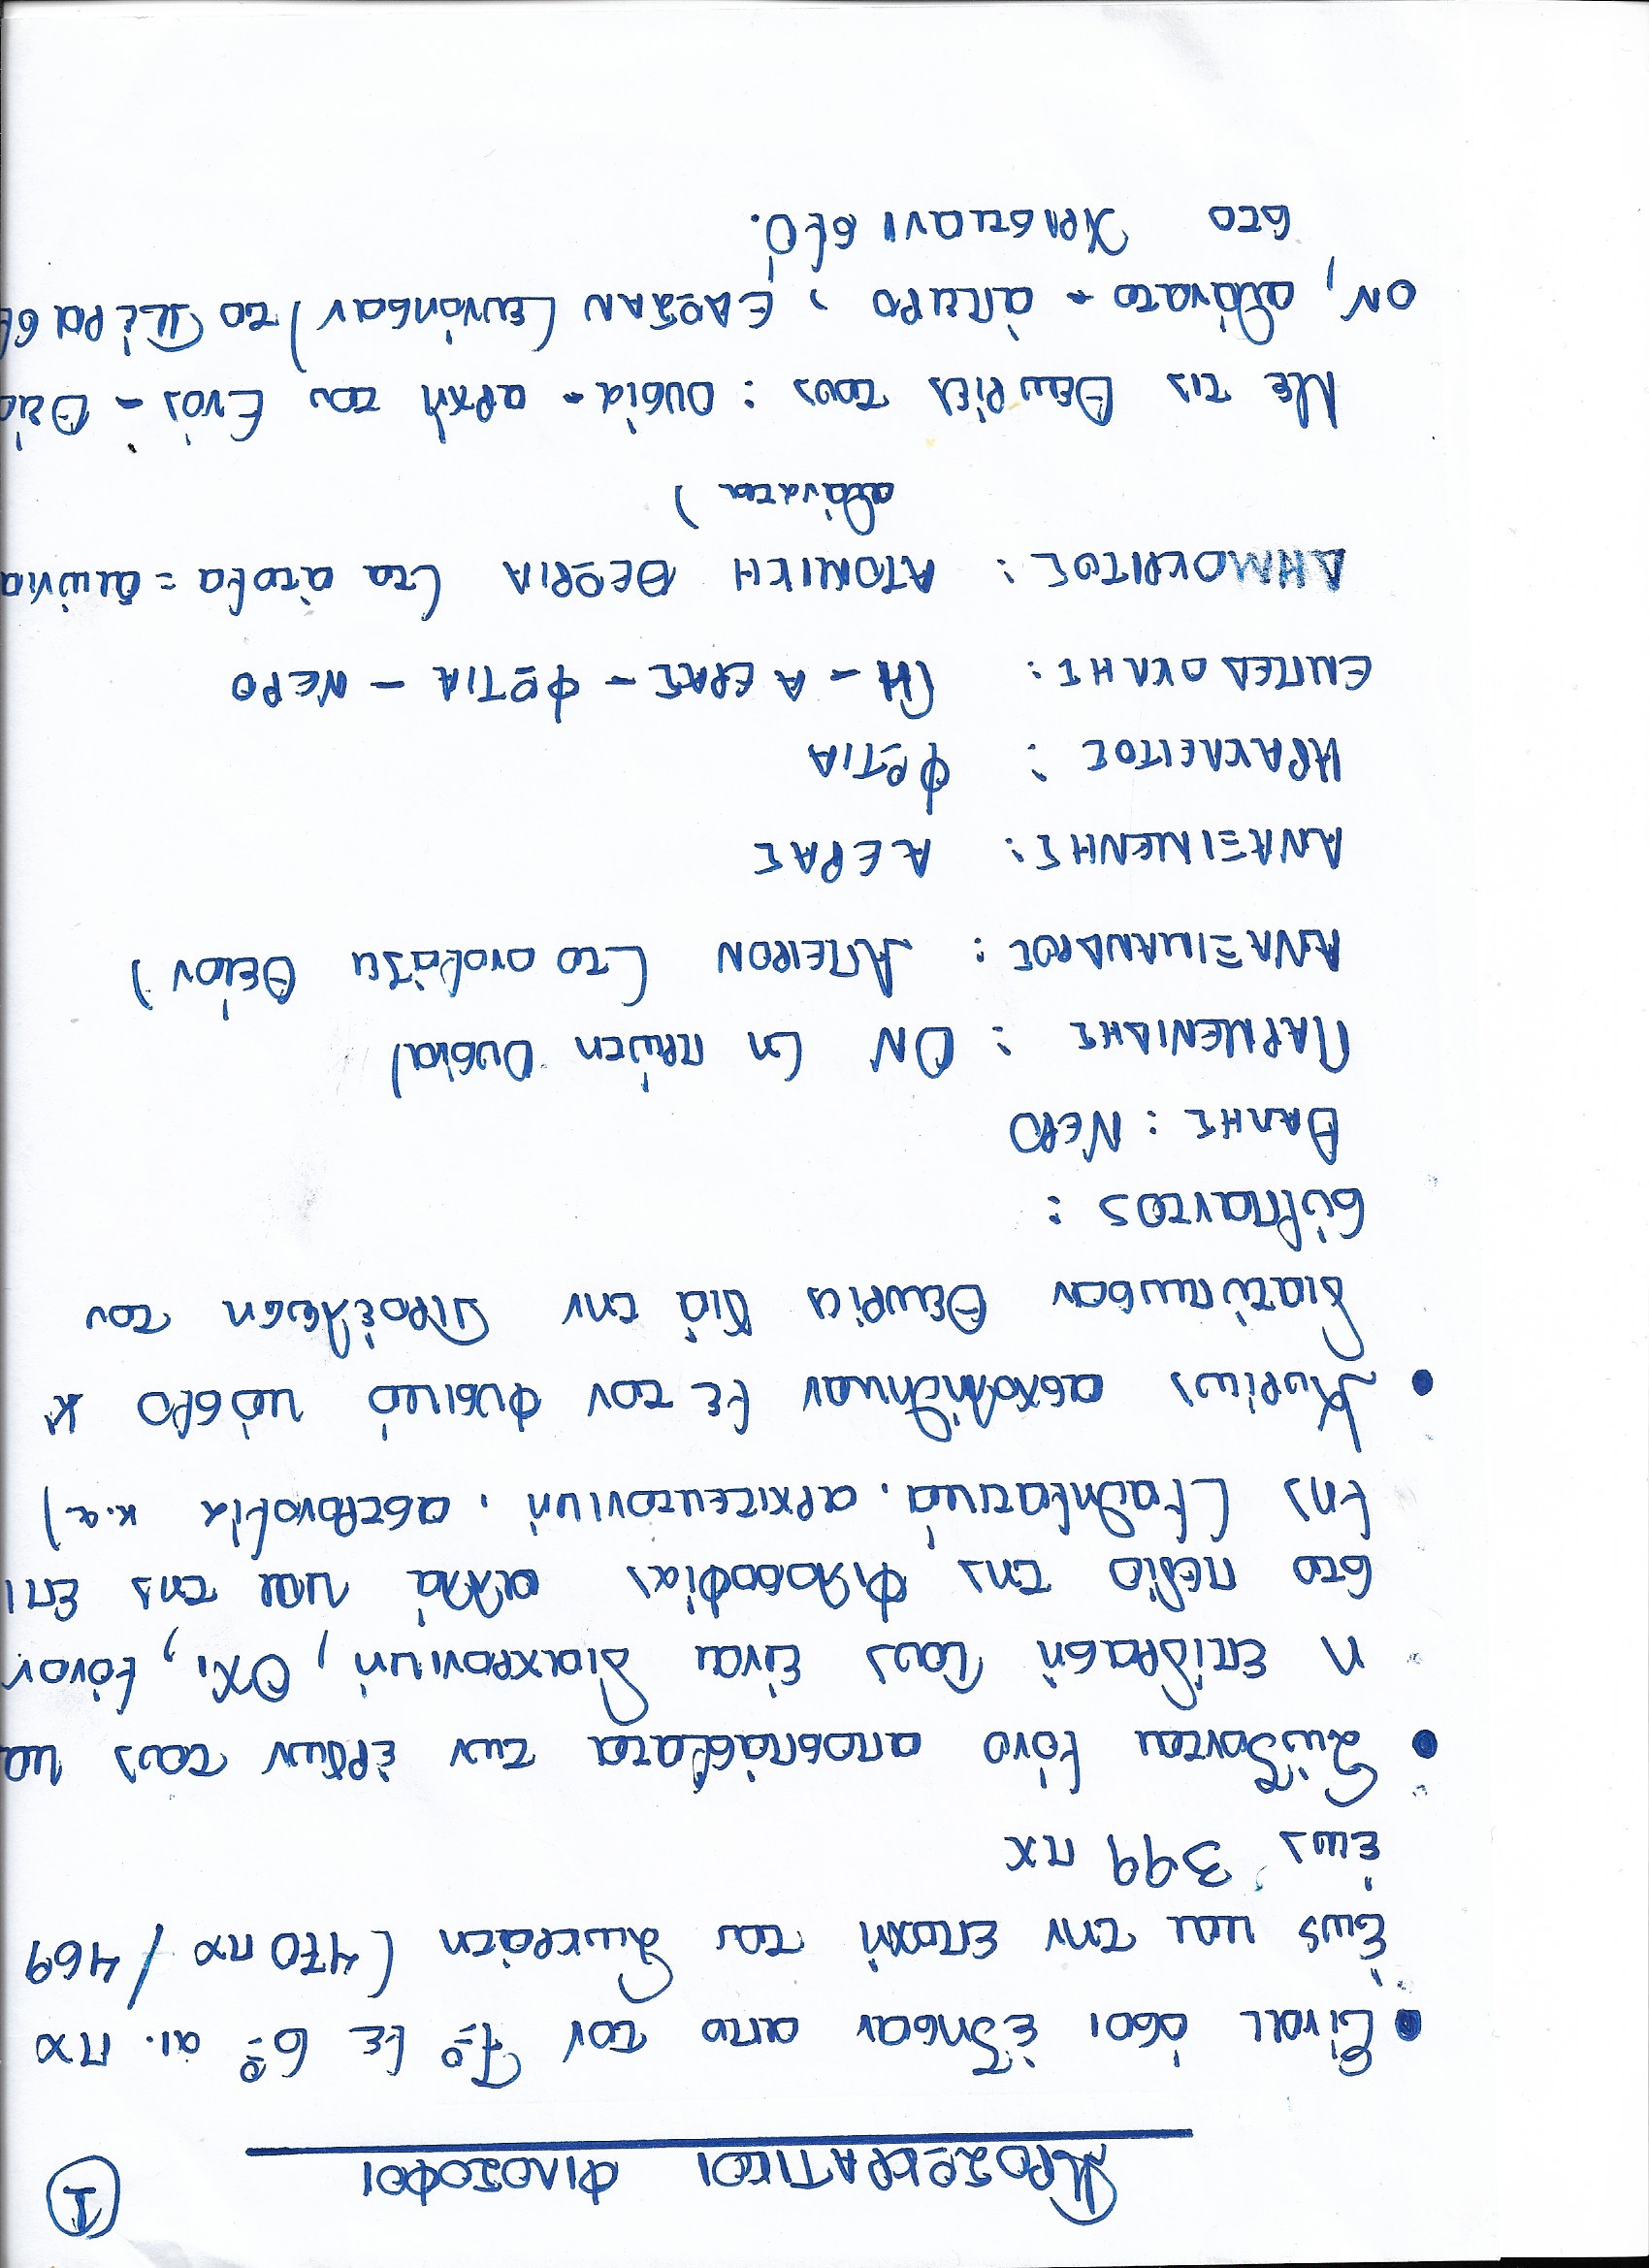 ΠΡΟΣΩΚΡΑΤΙΚΟΙ ΦΙΛΟΣΟΦΟΙ 1
• Είναι όσοι έζησαν απο τον 7ο με 6ο αι. πχ
έως και την εποχή του Σωκράτη (470 πχ / 469
έως 399 πχ
• Σώζονται μόνο αποσπάσματα των έργων τους κα
η επίδρασή τους είναι διαχρονική, Οχι, μόνον
στο πεδίο της φιλοσοφίας αλλά και της επι
μης (μαθηματικά, αρχιτεκτονική, αστρονομία κ.α)
• Κυρίως ασχολήθηκαν με τον φυσικό κόσμο κ
διατύπωσαν θεωρία διά την προέλευση του
σύμπαντος :
ΘΑΛΗΣ : ΝΕΡΟ
ΠΑΡΜΕΝΙΔΗΣ : ΟΝ (η πρώτη Ουσία)
ΑΝΑΞΙΜΑΝΔΡΟΣ : ΑΠΕΙΡΟΝ (το ονομάζει Θείον)
ΑΝΑΞΙΜΕΝΗΣ : ΑΕΡΑΣ
ΗΡΑΚΛΕΙΤΟΣ : ΦΩΤΙΑ
ΕΜΠΕΔΟΚΛΗΣ : ΓΗ - ΑΕΡΑΣ - ΦΩΤΙΑ - ΝΕΡΟ
ΔΗΜΟΚΡΙΤΟΣ : ΑΤΟΜΙΚΗ ΘΕΩΡΙΑ (τα άτομα = αιώνια
αθάνατα)
Με τις Θεωρίες τους : ουσία - αρχή του Ενός - Θείο
ΟΝ, αθάνατο - άπειρο, ΕΔΩΣΑΝ (ευνόησαν) το Πέρασμ
στο Χριστιανισμό.